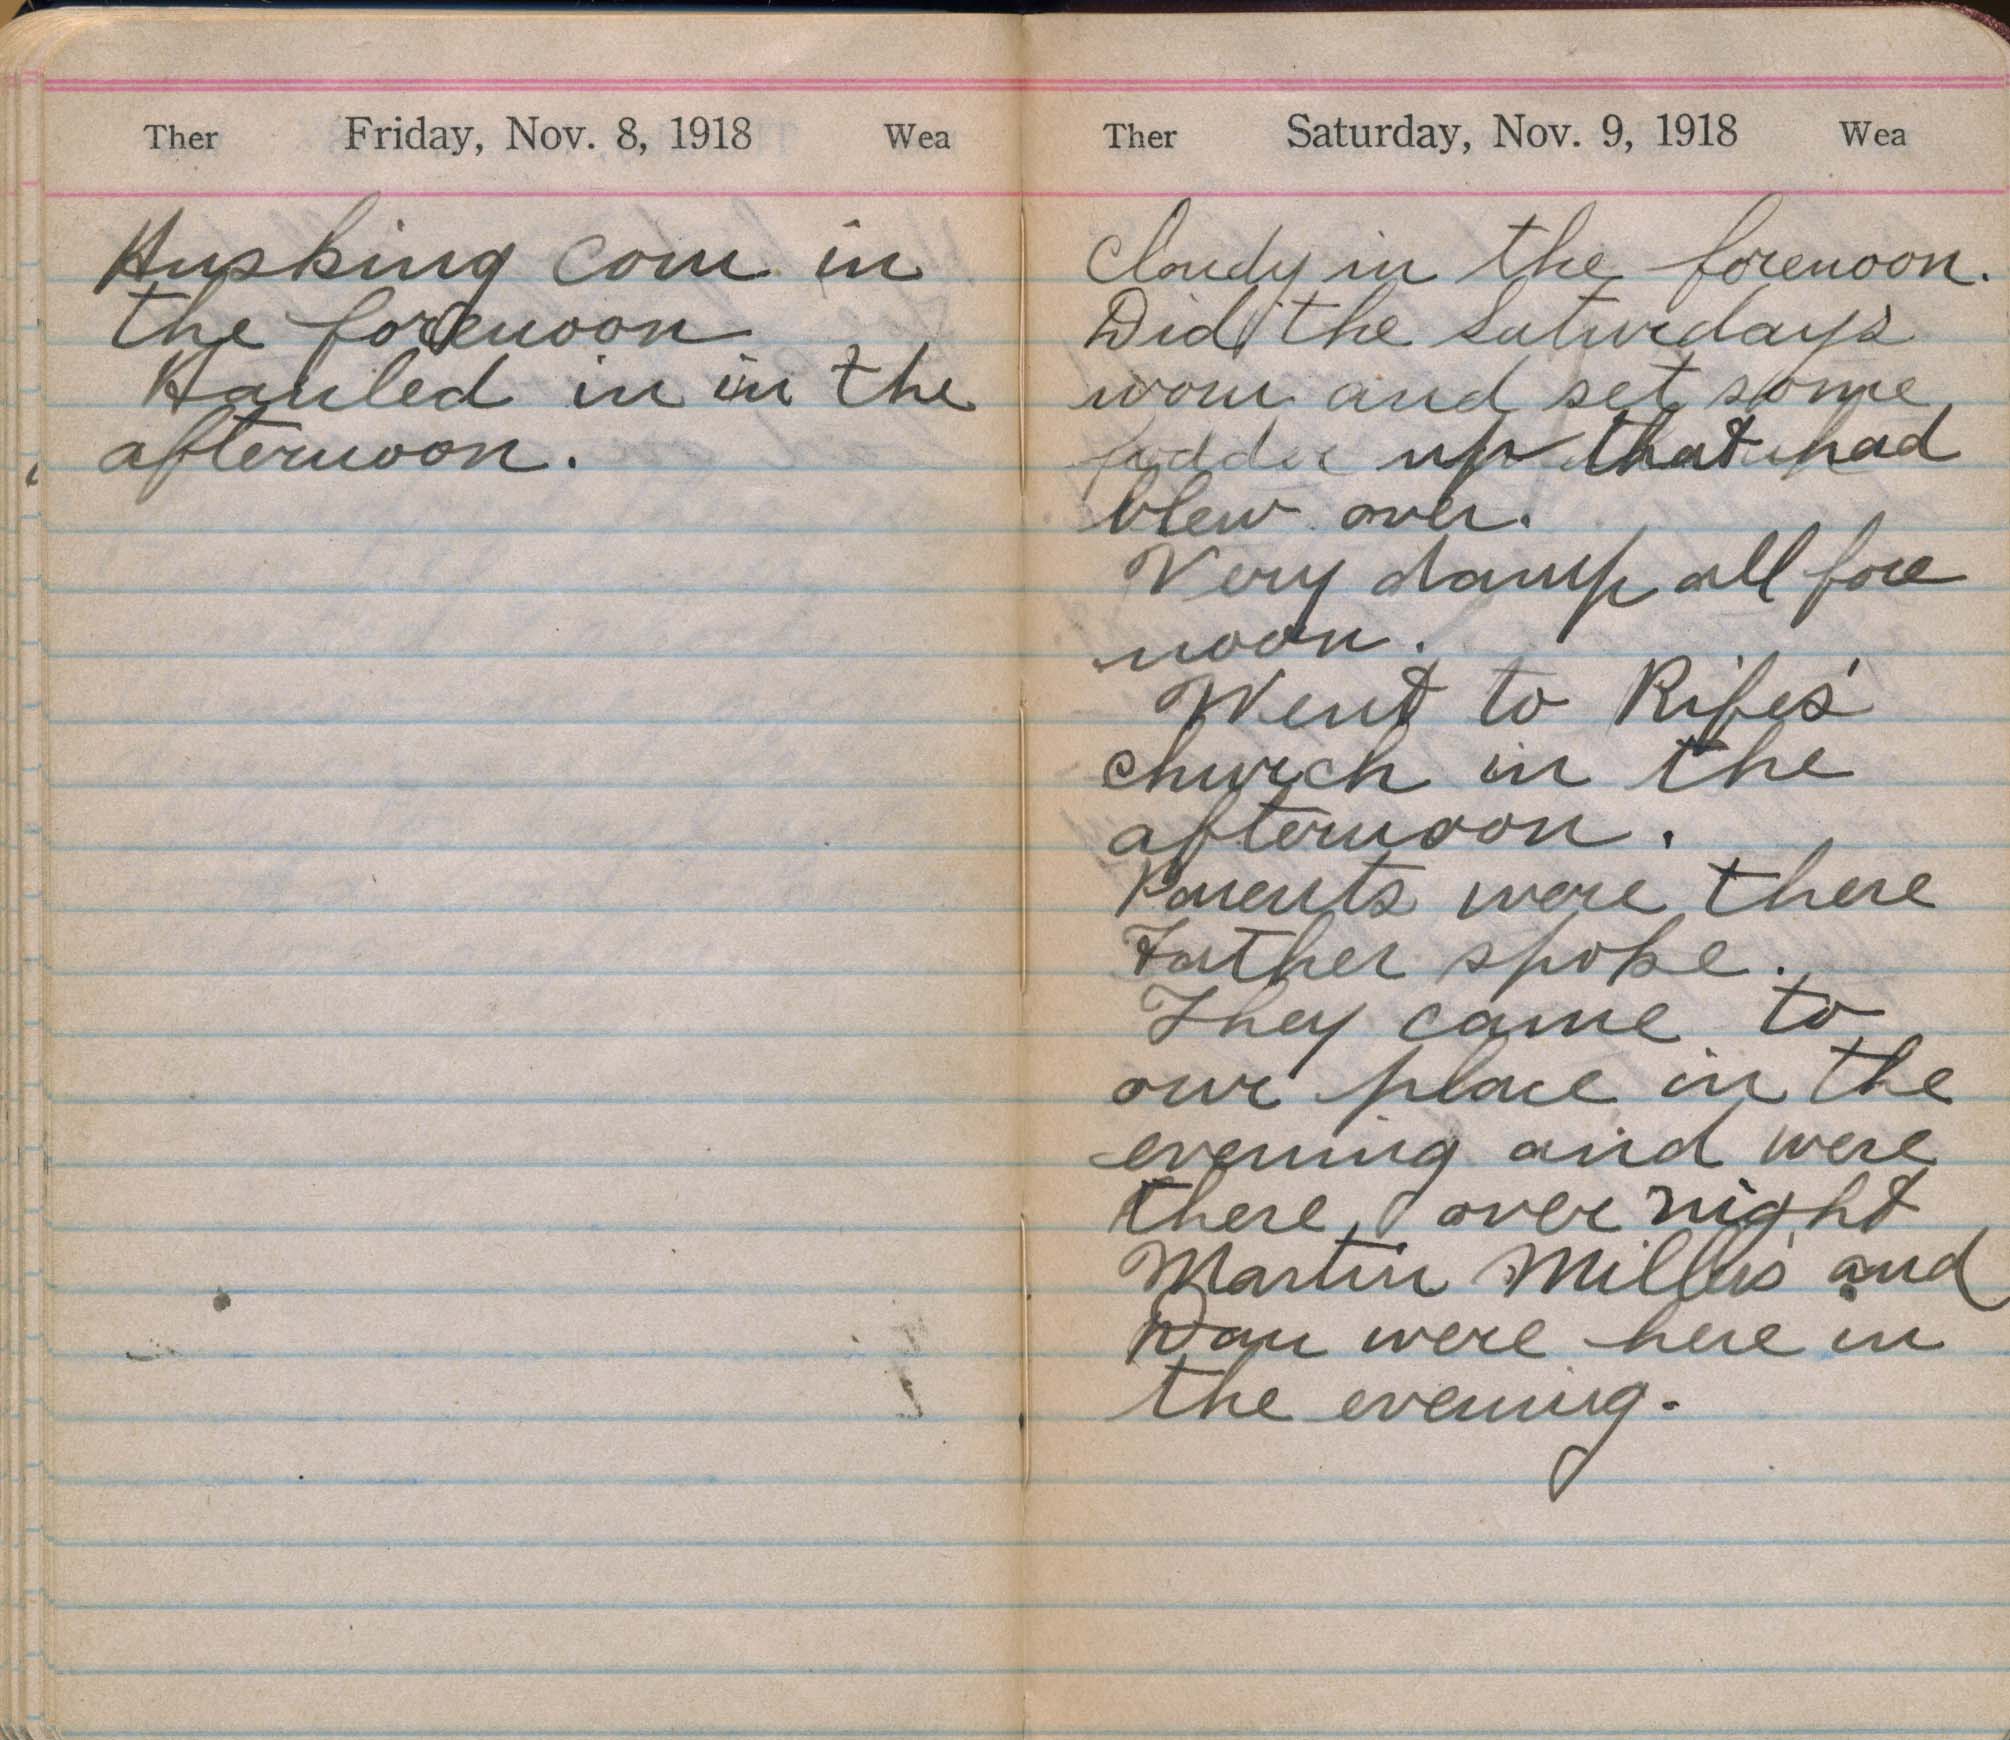 Ther Friday, Nov. 8, 1918 Wea
Husking corn in
the forenoon
Hauled in in the
afternoon.
Ther Saturday, Nov. 9, 1918 Wea
Cloudy in the forenoon.
Did the Saturdays
and set some
fodder up that had
blew over.
Very damp all fore
noon.
Went to Rifes'
church in the
afternoon.
Parents were there
Father spoke.
They came to
our place in the
evening and were
there over night
Martin Millers and
Dan were here in
the evening.